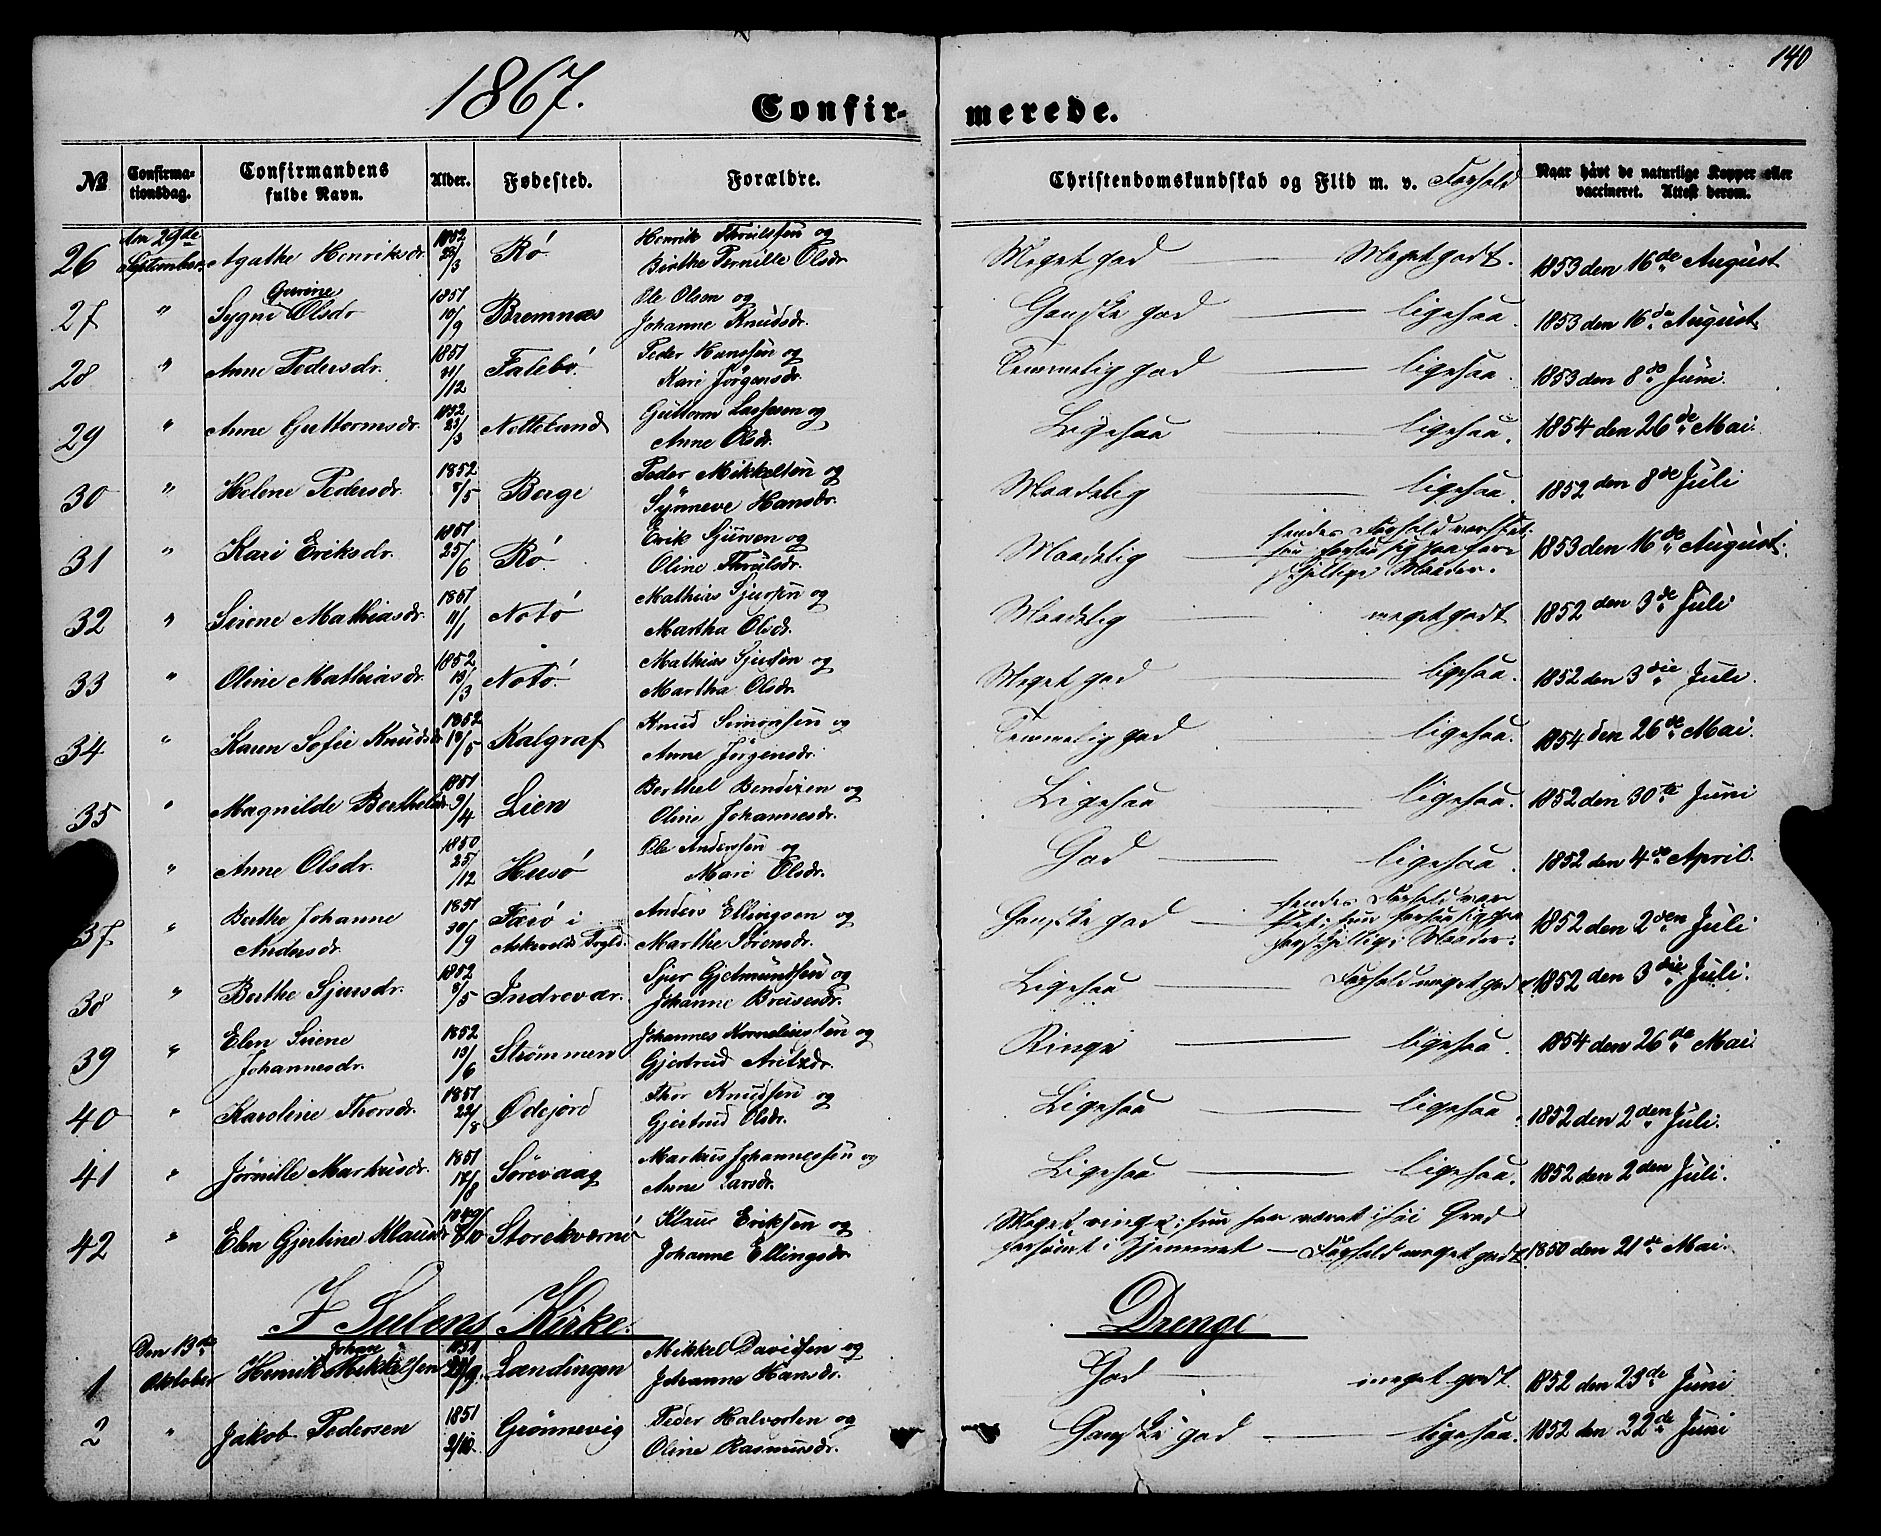 140
1867.
Confir- merede.
№ Confirma-tionsdag. Confirmandens fulde Navn. Alder. Fødested. Forældre. Christendomskundskab og Flid m. v. Forhold Naar havt de naturlige Kopper eller vaccineret. Attest derom.
26 den 29de September Agathe Henriksdr. 1852 23/3 Rø Henrik Thrulssen og Birthe Pernille Olsdr Meget god — Meget godt. 1853 den 16de August
27 " Sygni Gurine Olsdr 1851 10/9 Bremnæs Ole Olsen og Johanne Knudsdr. Ganske god — ligesaa. 1853 den 16de August
28 " Anne Pedersdr. 1851 21/12 Falebø Peder Hanssen og Kari Jørgensdr. Temmelig god — ligesaa. 1853 den 8de Juni.
29 " Anne Guttormsdr. 1852 23/3 Nottelund Guttorm Lassesen og Anne Olsdr. Ligesaa — ligesaa. 1854 den 26de Mai.
30 " Helene Pedersdr. 1852 8/5 Berge Peder Mikkelsen og Synneve Hansdr. Maadelig — ligesaa. 1852 den 8de Juli
31 " Kari Eriksdr. 1851 25/6 Rø. Erik Sjursen og Oline Thrulsdr. Maadelig — hendes Forhold var Maader. 1853 den 16de August.
32 " Seiene Mathiasdr. 1851 11/1 Notø Mathias Sjursen og Martha Olsdr. Maadelig — meget godt 1852 den 3de Juli
33 " Oline Mathiasdr. 1852 19/3 Notø. Mathias Sjursen og Martha Olsdr. Meget god — ligesaa. 1852 den 3die Juli.
34 " Karen Sofie Knudsdr 1852 19/5 Kalgraf Knud Simonsen og Anne Jørgensdr. Temmelig god — ligesaa. 1854 den 26de Mai.
35 " Magnilde Bertheldr 1851 9/4 Lien Berthel Bendixen og Oline Johannesdr. Ligesaa — ligesaa. 1852 den 30te Juni
" Anne Olsdr. 1850 25/12 Husø Ole Anderssen og Mari Olsdr. God — ligesaa. 1852 den 4de April.
37 " Berthe Johanne Andersdr. 1851 30/9 Færø i Askevolds Prgld. Anders Ellingsen og Marthe Sørensdr. Ganske god — hendes Forhold var Maader. 1852 den 2den Juli
38 " Berthe Sjursdr. 1852 8/5 Indrevær. Sjur Gjetmundsen og Johanne Breisesdr. Ligesaa — Forhold meget godt. 1852 den 3die Juli.
39 " Elen Seiene Johannesdr. 1852 19/6 Strømmen Johannes Korneliussen og Gjertrud Aretzdr. Ringe — ligesaa. 1854 den 26de Mai.
40 " Karoline Thorsdr. 1851 22/8 Ødejord Thor Knudsen og Gjertrud Olsdr. Ligesaa — ligesaa. 1852 den 2den Juli.
41 " Jørnille Markusdr. 1851 17/8 Sørevaag Markus Johannessen og Anne Larsdr. Ligesaa — ligesaa. 1852 den 2den Juli.
42 " Elen Gjertine Klausdr 1849 8/10 Storekvernø Klaus Eriksen og Johanne Ellingsdr. Meget ringe; hun har været i høi Grad forsømt i Hjemmet — Forhold meget godt. 1850 den 21de Mai.
I Sulens Kirke. Drenge
1 Den 13de Oktober Henrik Johan Mikkelsen 1851 22/9. Lændingen Mikkel Davidsen og Johanne Hansdr. God — meget godt. 1852 den 23de Juni
2 " Jakob Pedersen 1851 2/10. Grønnevig Peder Halvorsen og Oline Rasmusdr. Ganske god — ligesaa. 1852 den 22de Juni